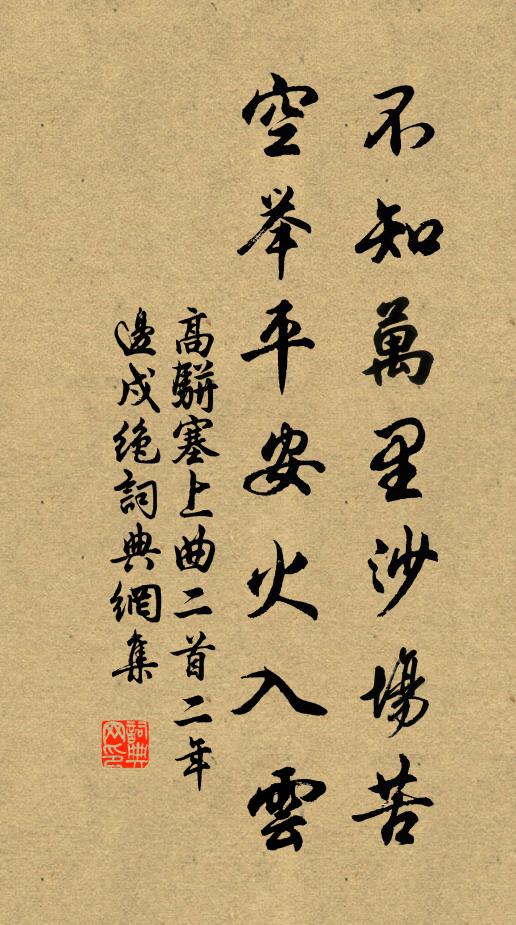 不知萬里沙場苦
空举平安火入雲
高駢塞上曲二首二年
邊戍絶詞典網集
詞典网印